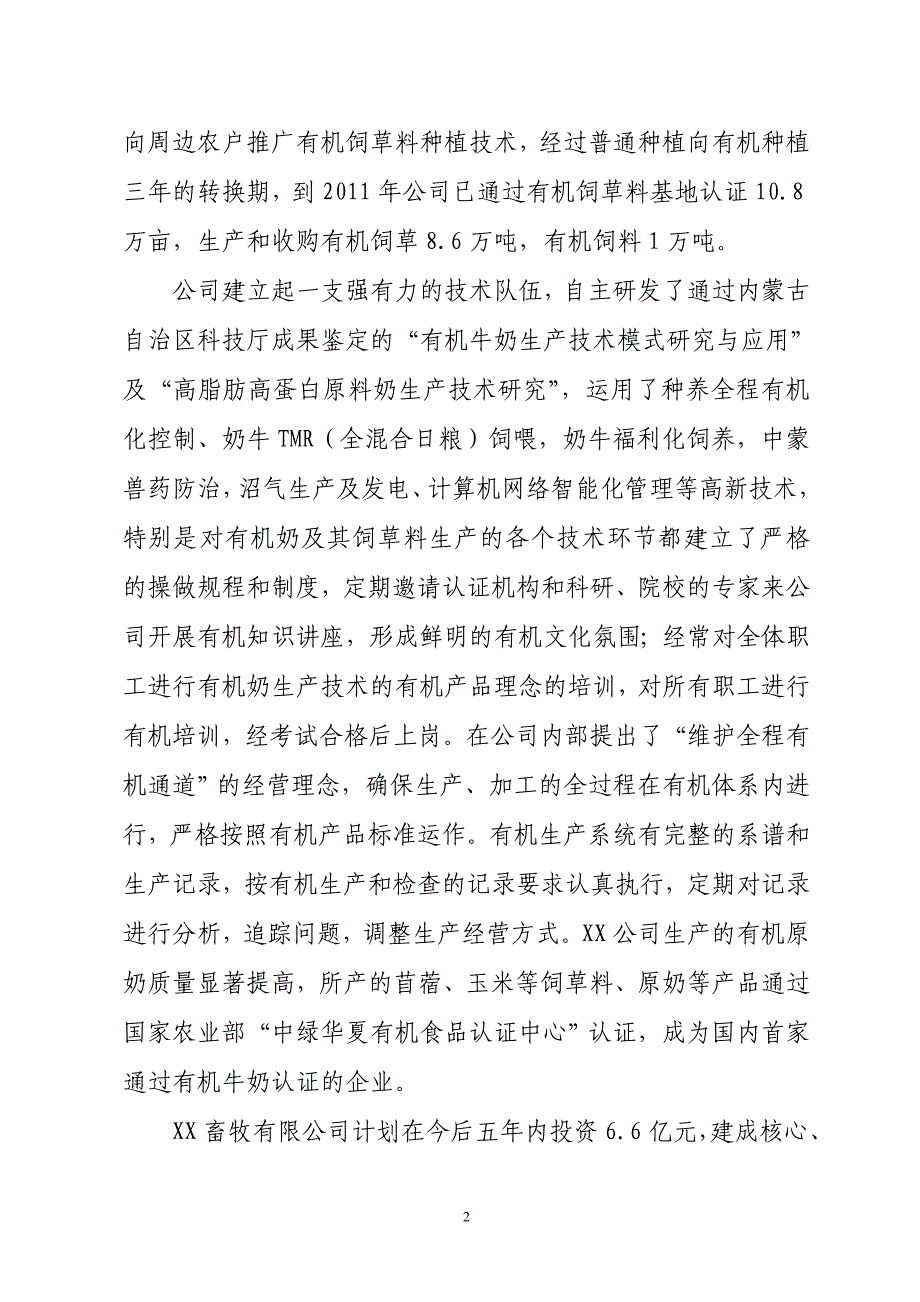 向周边农户推广有机饲草料种植技术，经过普通种植向有机种植
三年的转换期，到 2011 年公司已通过有机饲草料基地认证 10.8
万亩，生产和收购有机饲草 8.6 万吨，有机饲料 1 万吨。
公司建立起一支强有力的技术队伍，自主研发了通过内蒙古
自治区科技厅成果鉴定的“有机牛奶生产技术模式研究与应用”
及“高脂肪高蛋白原料奶生产技术研究”，运用了种养全程有机
化控制、奶牛 TMR（全混合日粮）饲喂，奶牛福利化饲养，中蒙
兽药防治，沼气生产及发电、计算机网络智能化管理等高新技术，
特别是对有机奶及其饲草料生产的各个技术环节都建立了严格
的操做规程和制度，定期邀请认证机构和科研、院校的专家来公
司开展有机知识讲座，形成鲜明的有机文化氛围；经常对全体职
工进行有机奶生产技术的有机产品理念的培训，对所有职工进行
有机培训，经考试合格后上岗。在公司内部提出了“维护全程有
机通道”的经营理念，确保生产、加工的全过程在有机体系内进
行，严格按照有机产品标准运作。有机生产系统有完整的系谱和
生产记录，按有机生产和检查的记录要求认真执行，定期对记录
进行分析，追踪问题，调整生产经营方式。XX 公司生产的有机原
奶质量显著提高，所产的苜蓿、玉米等饲草料、原奶等产品通过
国家农业部“中绿华夏有机食品认证中心”认证，成为国内首家
通过有机牛奶认证的企业。
XX 畜牧有限公司计划在今后五年内投资 6.6 亿元，建成核心、
2